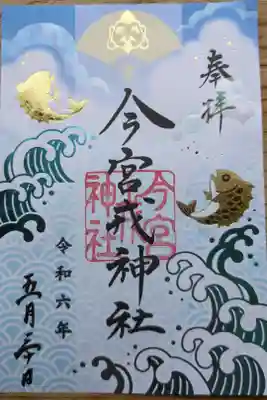 奉拝
今宮戎神社
今宮
神社
令和六年
五月 日